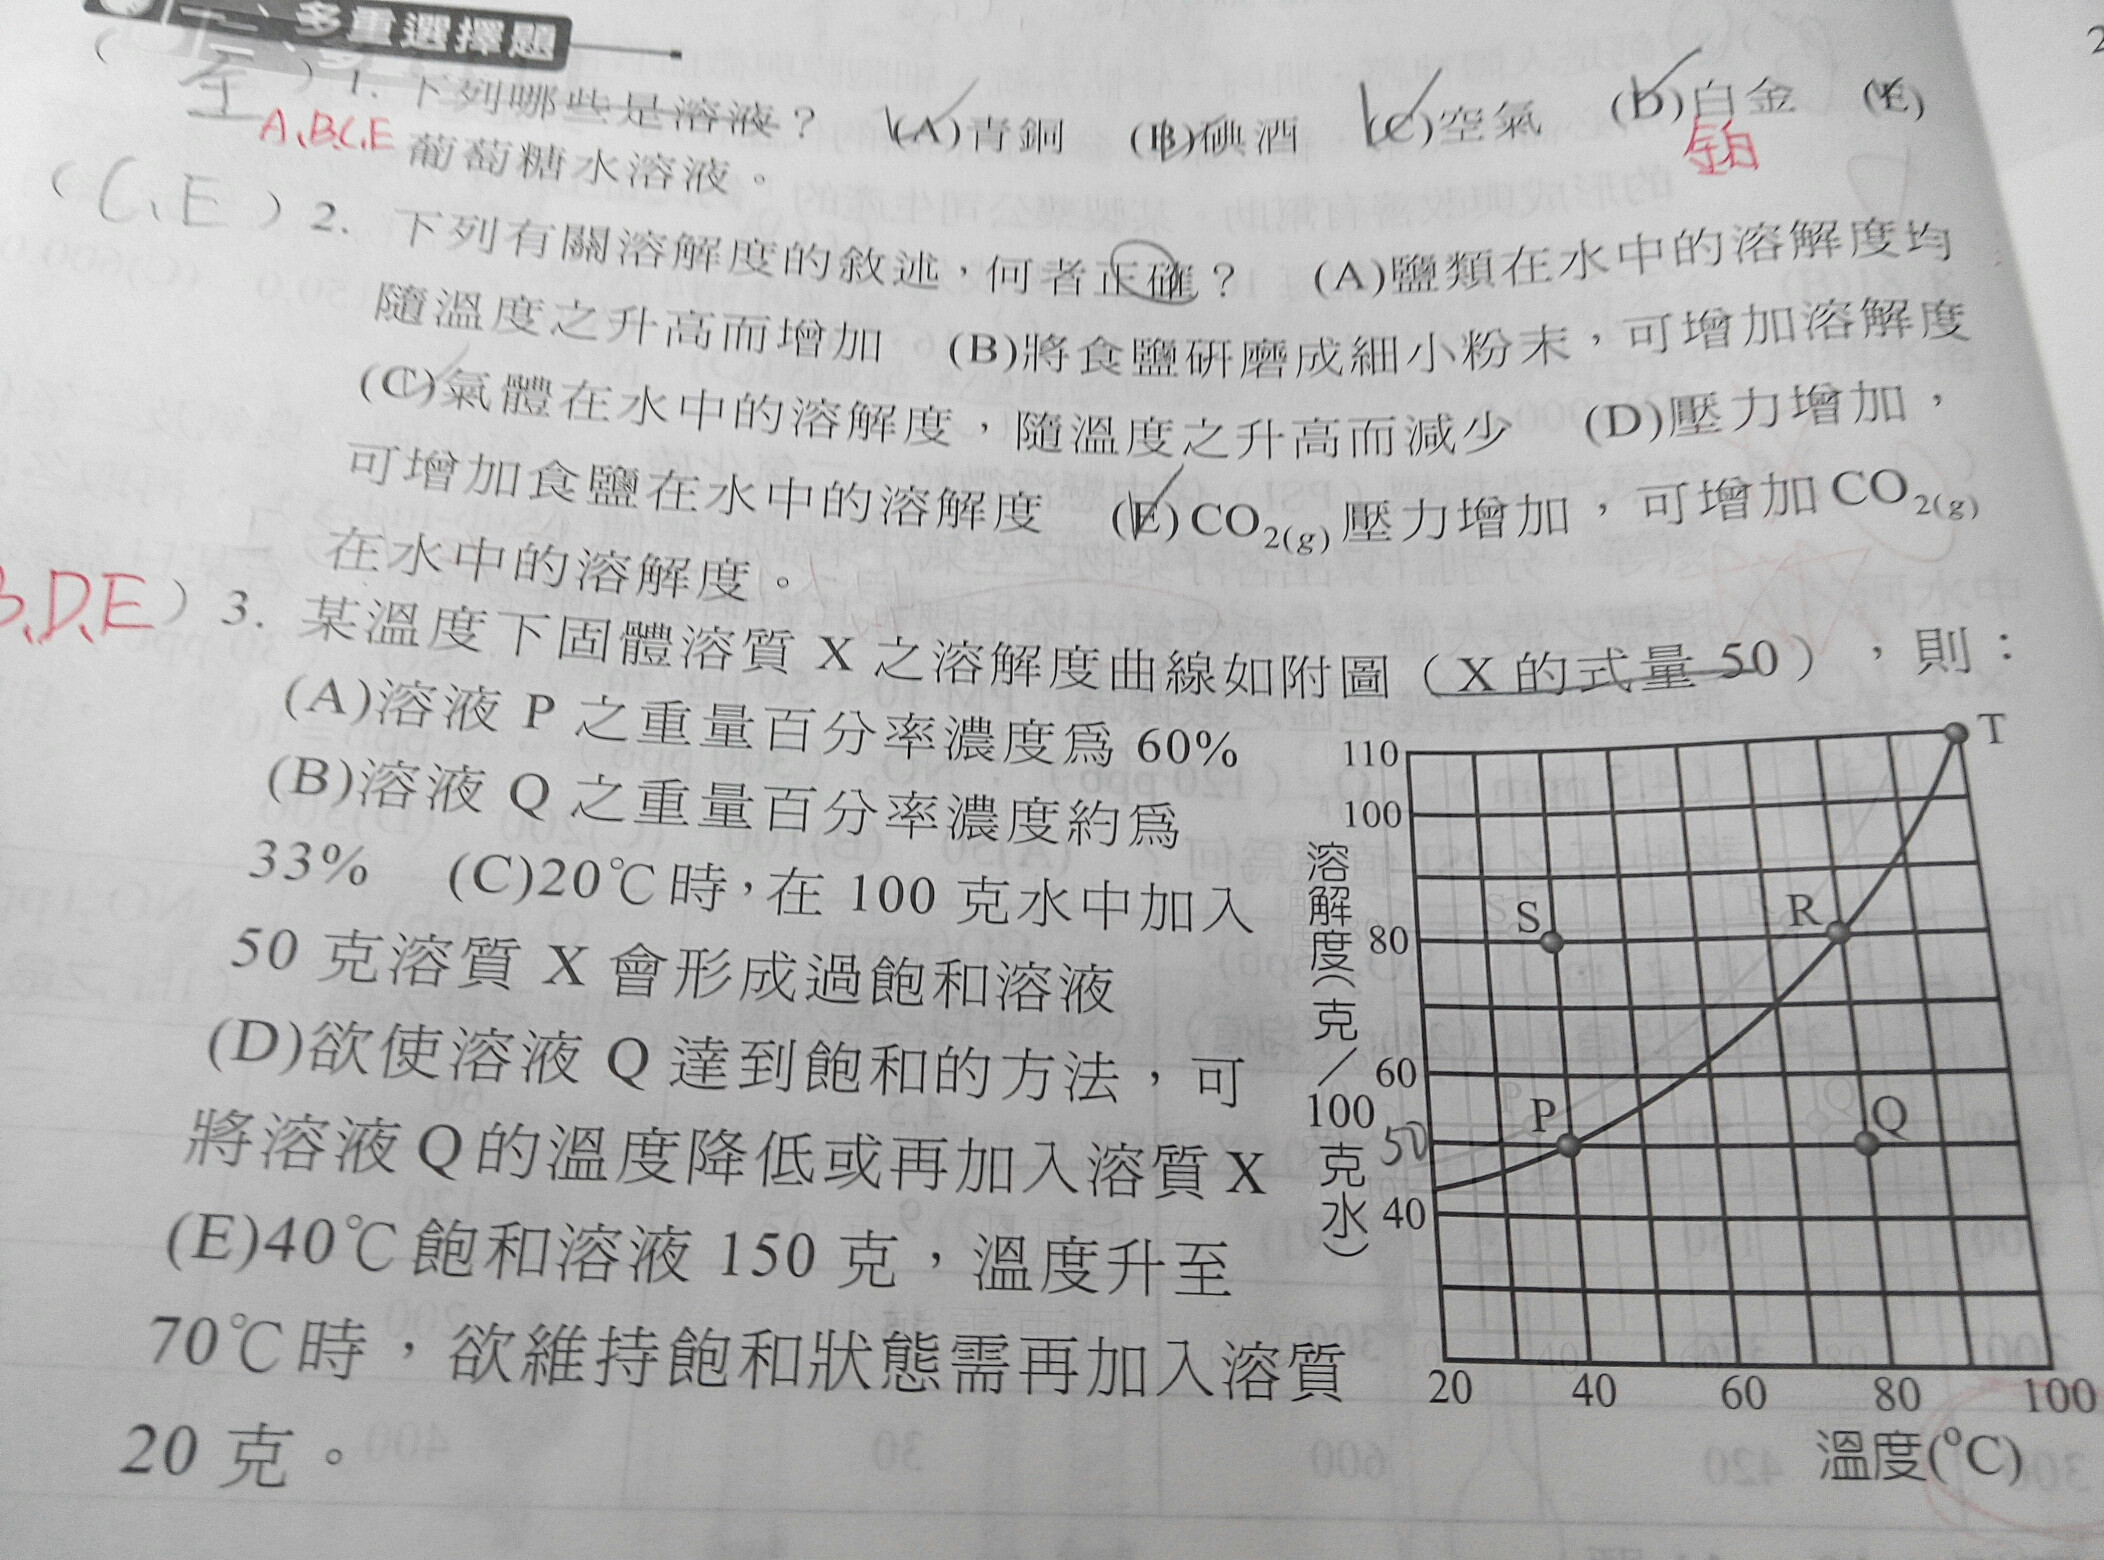 二、多重選擇題
2
(全)1. 下列哪些是溶液？ (A)青銅 (B)碘酒 (C)空氣 (D)白金 (E)
A、B、C、E 葡萄糖水溶液。 鉑
(C、E)2. 下列有關溶解度的敘述，何者正確？ (A)鹽類在水中的溶解度均
隨溫度之升高而增加 (B)將食鹽研磨成細小粉末，可增加溶解度
(C)氣體在水中的溶解度，隨溫度之升高而減少 (D)壓力增加，
可增加食鹽在水中的溶解度 (E)CO2(g)壓力增加，可增加CO2(g)
在水中的溶解度。
B、D、E)3. 某溫度下固體溶質 X 之溶解度曲線如附圖（X 的式量 50），則：
(A)溶液 P 之重量百分率濃度為 60%
(B)溶液 Q 之重量百分率濃度約為
33% (C)20℃時，在 100 克水中加入
50 克溶質 X 會形成過飽和溶液
(D)欲使溶液 Q 達到飽和的方法，可
將溶液 Q 的溫度降低或再加入溶質 X
(E)40℃飽和溶液 150 克，溫度升至
70℃時，欲維持飽和狀態需再加入溶質
20 克。
溶解度(克/100克水)
110
100
80
60
50
40
T
S
R
P
Q
20 40 60 80 100
溫度(°C)